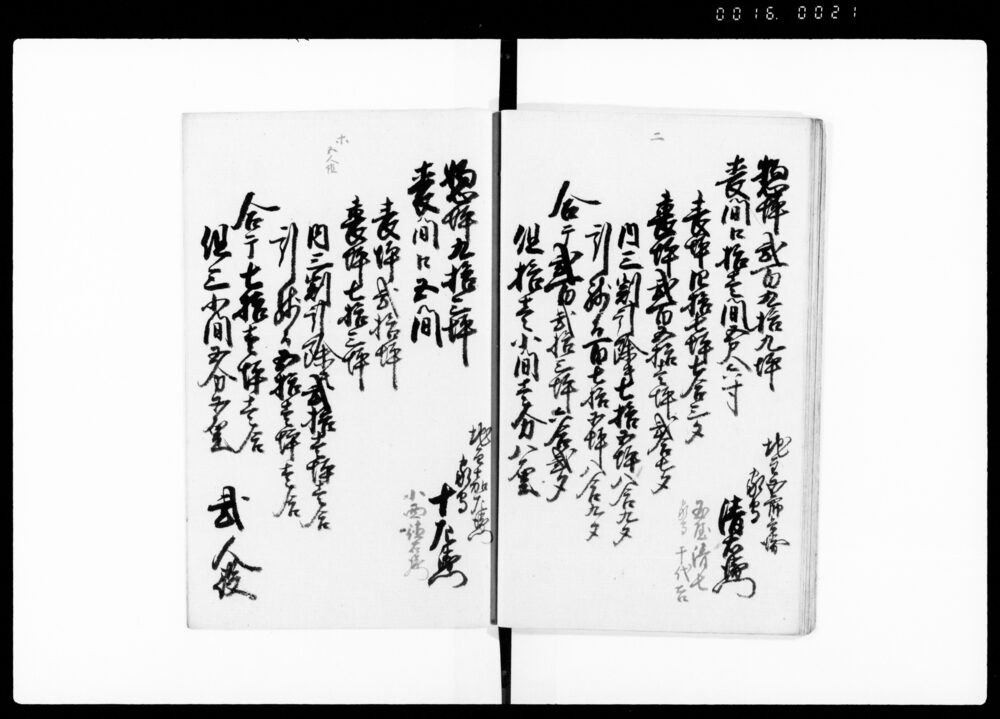 0016. 0021
二
惣坪弐百九拾九坪
表間口拾壱間五尺八寸
表坪四拾七坪七合三夕
裏坪弐百五拾壱坪弐合七夕
内三割引除テ七拾五坪八合九夕
引残而百七拾五坪八合九夕
合テ弐百弐拾三坪六合弐夕
但拾壱小間壱分八厘
家守
清右衛門
玉屋清七
家守
ホ
五人組
惣坪九拾三坪
表間口五間
表坪弐拾坪
裏坪七拾三坪
内三割引除テ弐拾壱坪壱合
引残而五拾壱坪壱合
合テ七拾壱坪壱合
但三小間五分五厘
家守
十兵衛
弐人役